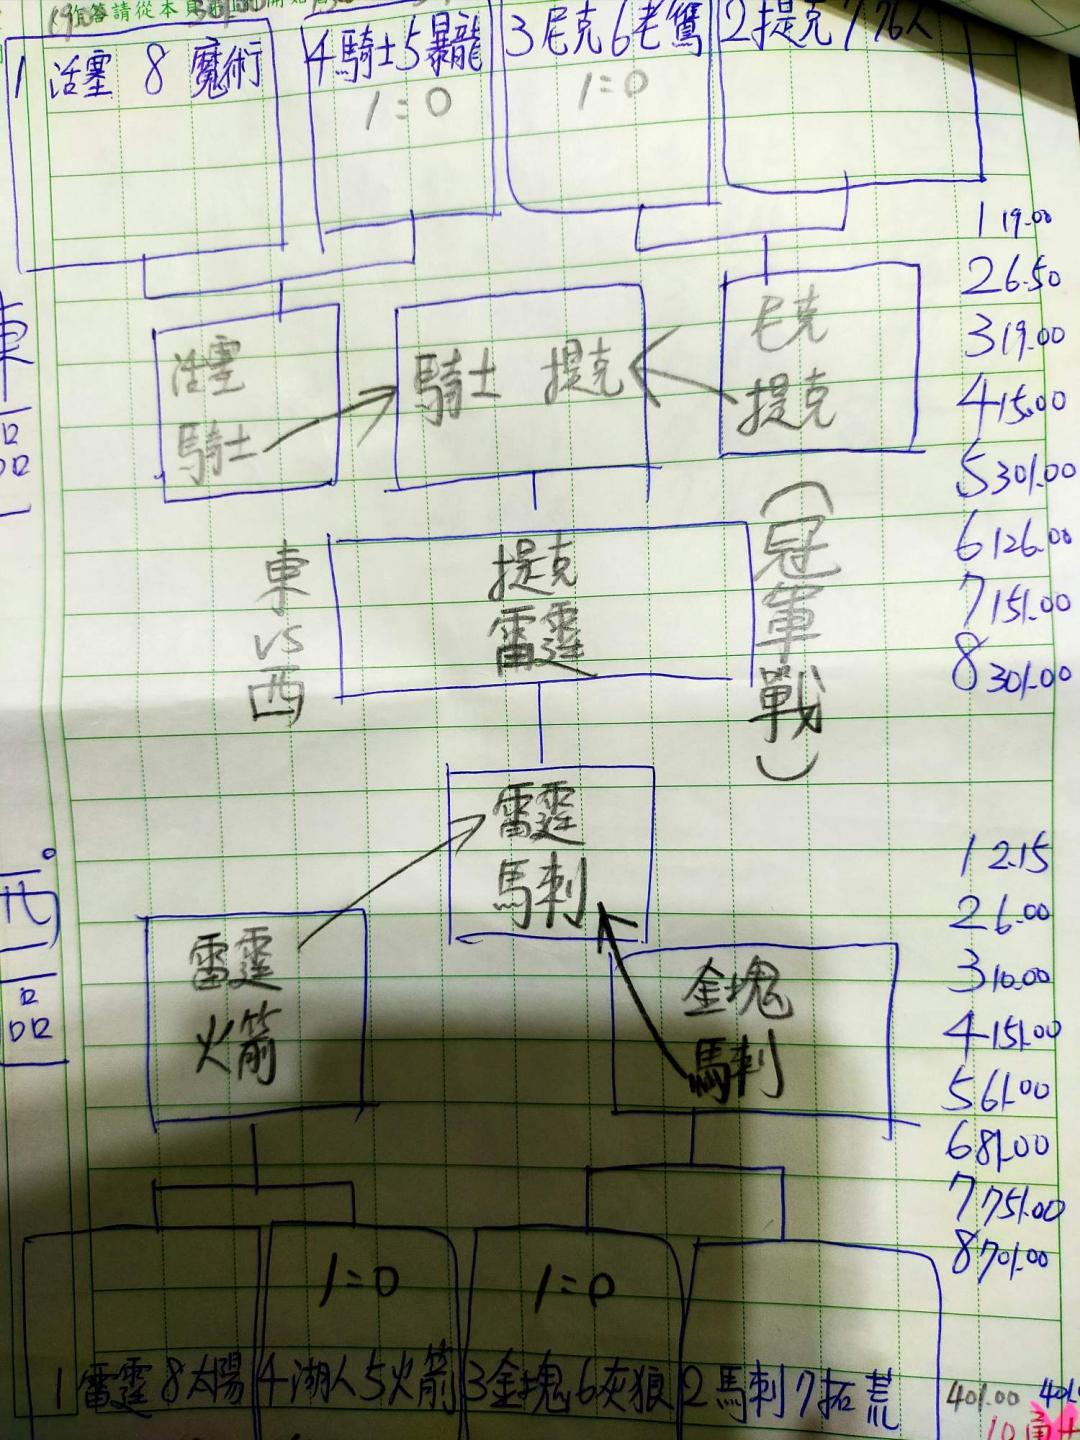 作答請從本頁
1 活塞 8 魔術
4騎士5暴龍
3尼克6老鷹
2提克776人
1=0
1=0
1 19.00
2 6.50
3 19.00
4 15.00
5 301.00
6 126.00
7 151.00
8 301.00
東
品
活塞
騎士
騎士 提克
尼克
提克
東vs西
提克
雷霆
(冠軍戰)
雷霆
馬刺
西
品
雷霆
火箭
金塊
馬刺
1 2.15
2 6.00
3 10.00
4 151.00
5 61.00
6 81.00
7 751.00
8 701.00
1=0
1=0
1雷霆8太陽
4湖人5火箭
3金塊6灰狼
2馬刺7拓荒
401.00